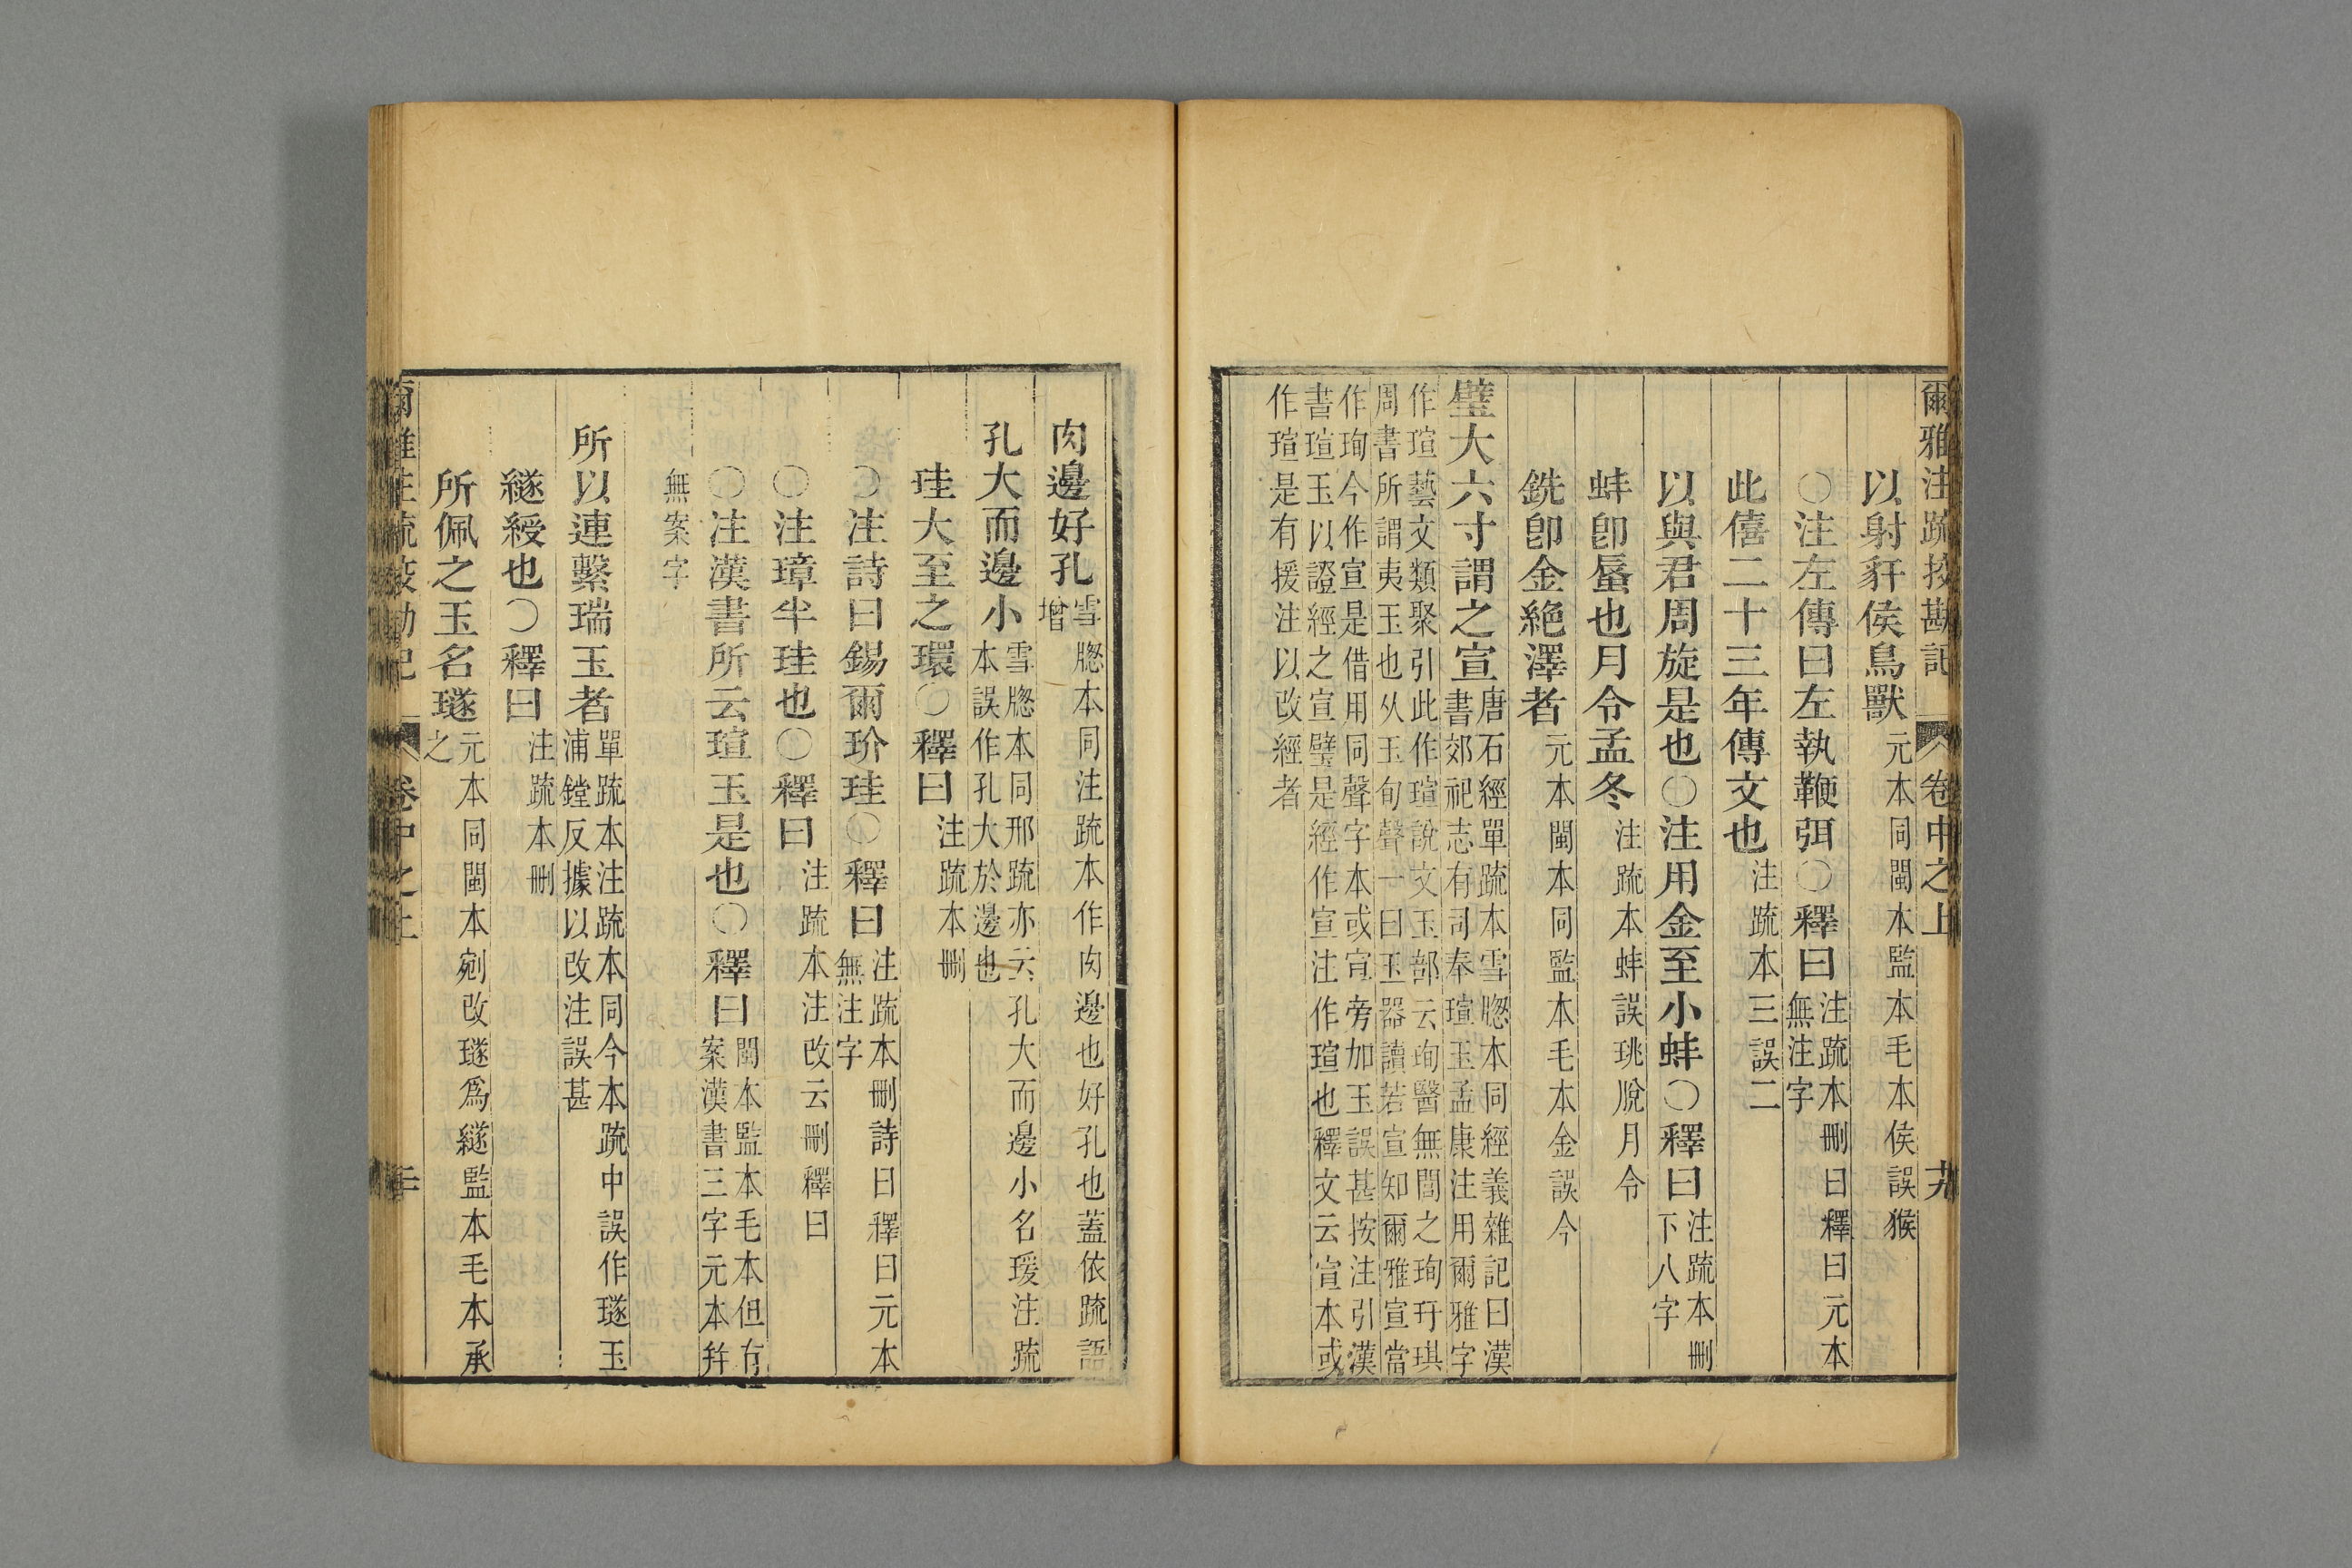 爾雅注疏挍勘記 卷中之上 十九
以射豻侯鳥獸元本同閩本監本毛本侯誤猴
○注左傳曰左執鞭弭○釋曰注疏本刪曰釋曰元本
無注字
此僖二十三年傳文也注疏本三誤二
以與君周旋是也○注用金至小蚌○釋曰注疏本刪
下八字
蚌卽蜃也月令孟冬注疏本蚌誤珧脫月令
銑卽金絶澤者元本閩本同監本毛本金誤今
璧大六寸謂之宣唐石經單疏本雪牕本同經義雜記曰漢
書郊祀志有司奉瑄玉孟康注用爾雅字
作瑄藝文類聚引此作瑄說文玉部云珣醫無閭之珣玗琪
周書所謂夷玉也从玉旬聲一曰玉器讀若宣知爾雅宣當
作珣今作宣是借用同聲字本或宣旁加玉誤甚按注引漢
書瑄玉以證經之宣璧是經作宣注作瑄也釋文云宣本或
作瑄是有援注以改經者
肉邊好孔雪牕本同注疏本作肉邊也好孔也蓋依疏語
增
孔大而邊小雪牕本同邢疏亦云孔大而邊小名瑗注疏
本誤作孔大於邊也
珪大至之環○釋曰注疏本刪
○注詩曰錫爾玠珪○釋曰注疏本刪詩曰釋曰元本
無注字
○注璋半珪也○釋曰注疏本注改云刪釋曰
○注漢書所云瑄玉是也○釋曰閩本監本毛本但有
案漢書三字元本幷
無案字
所以連繫瑞玉者單疏本注疏本同今本疏中誤作璲玉
浦鏜反據以改注誤甚
繸綬也○釋曰注疏本刪
所佩之玉名璲元本同閩本剜改璲爲繸監本毛本承
之
爾雅注疏挍勘記 卷中之上 二十